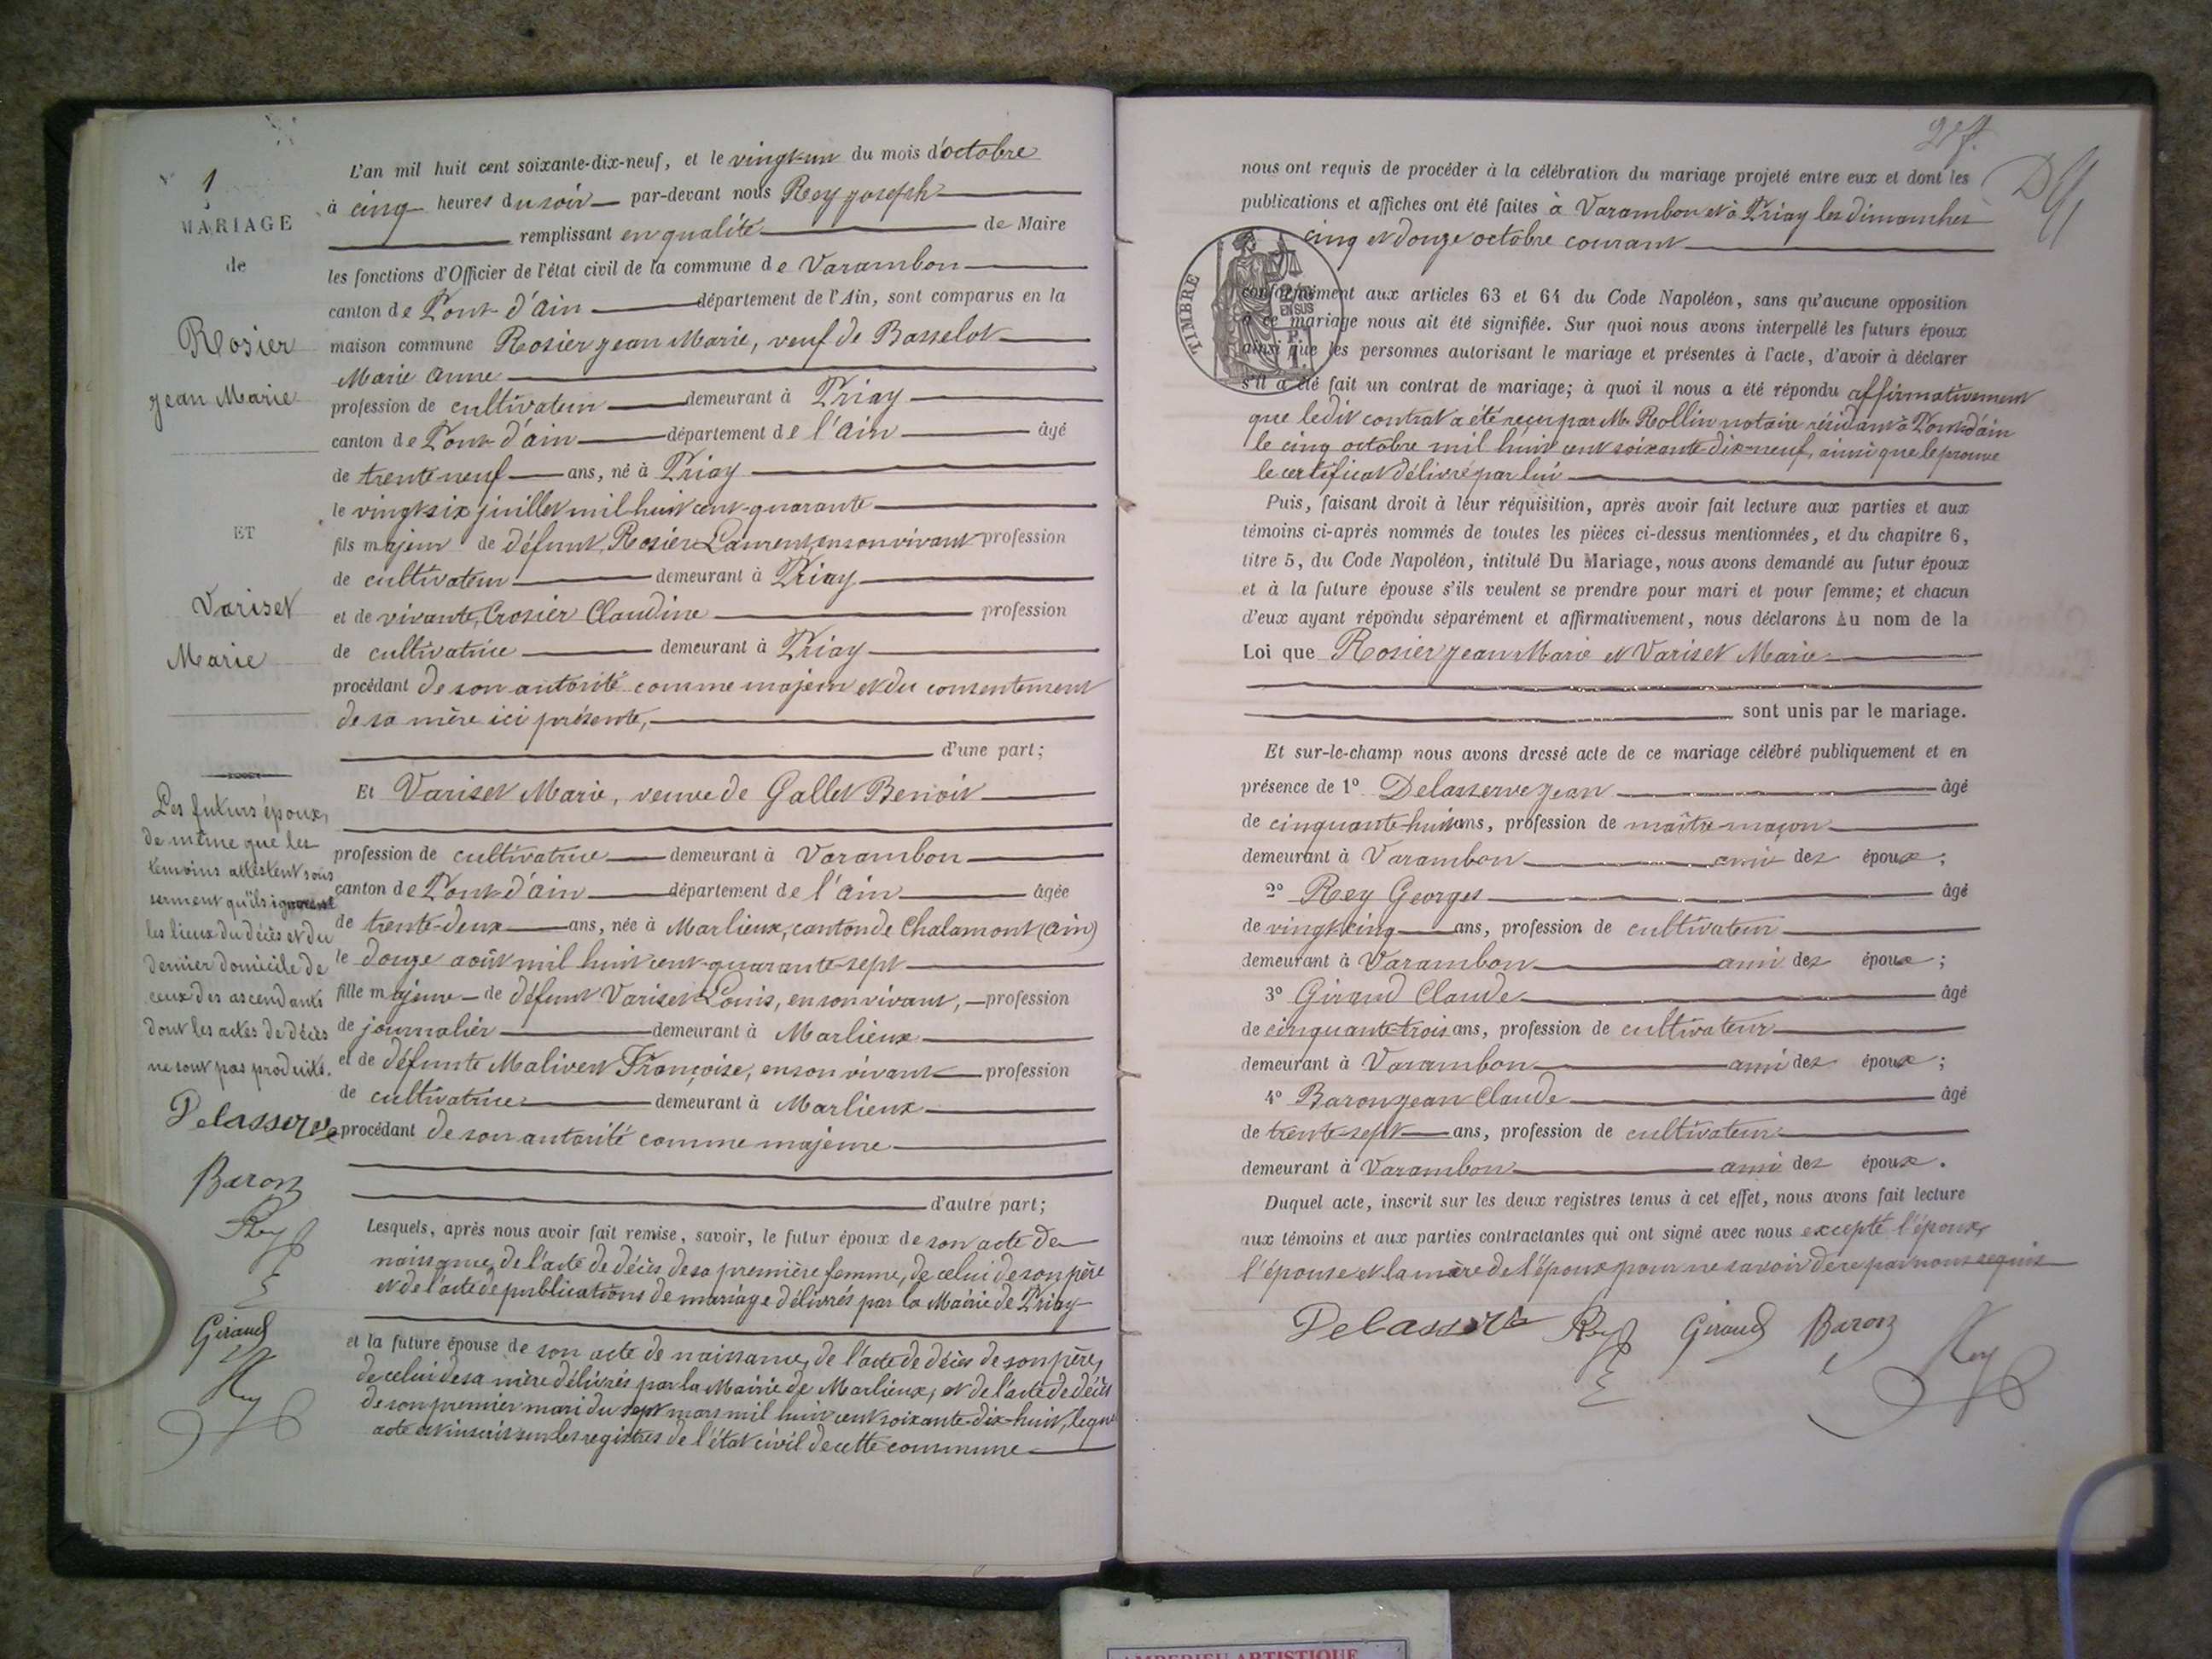 1
MARIAGE
de
Rosier
Jean Marie
ET
Variset
Marie
Les futurs époux,
de même que les
témoins attestent sous
serment qu'ils ignorent
les lieux du décès et du
dernier domicile de
ceux des ascendants
dont les actes de décès
ne sont pas produits.
Delasserve
Baron
Rey
Giraud
Rey
L'an mil huit cent soixante-dix-neuf, et le vingt-un du mois d'octobre
à cinq heures du soir par-devant nous Rey Joseph
remplissant en qualité de Maire
les fonctions d'Officier de l'état civil de la commune de Varambon
canton de Pont-d'ain département de l'Ain, sont comparus en la
maison commune Rosier Jean Marie, veuf de Basselot
Marie Anne
profession de cultivateur demeurant à Priay
canton de Pont-d'ain département de l'ain âgé
de trente neuf ans, né à Priay
le vingt-six juillet mil huit cent-quarante
fils majeur de défunt, Rosier Laurent, en son vivant profession
de cultivateur demeurant à Priay
et de vivante, Crosier Claudine profession
de cultivatrice demeurant à Priay
procédant de son autorité comme majeur et du consentement
de sa mère ici présente,
d'une part;
Et Variset Marie, veuve de Gallet Benoit
profession de cultivatrice demeurant à Varambon
canton de Pont-d'ain département de l'ain âgée
de trente-deux ans, née à Marlieux, canton de Chalamont (ain)
le douze août mil huit cent-quarante-sept
fille majeure de défunt Variset Louis, en son vivant, profession
de journalier demeurant à Marlieux
et de défunte Malivert Françoise, en son vivant profession
de cultivatrice demeurant à Marlieux
procédant de son autorité comme majeure
d'autre part;
Lesquels, après nous avoir fait remise, savoir, le futur époux de son acte de
naissance, de l'acte de décès de sa première femme, de celui de son père
et de l'acte de publications de mariage délivrés par la Mairie de Priay
et la future épouse de son acte de naissance, de l'acte de décès de son père,
de celui de sa mère délivrés par la Mairie de Marlieux, et de l'acte de décès
de son premier mari du sept mars mil huit cent soixante-dix-huit, lequel
acte est inscrit sur les registres de l'état civil de cette commune
nous ont requis de procéder à la célébration du mariage projeté entre eux et dont les
publications et affiches ont été faites à Varambon et à Priay les dimanches
cinq et douze octobre courant
TIMBRE
EN SUS
conformément aux articles 63 et 64 du Code Napoléon, sans qu'aucune opposition
à ce mariage nous ait été signifiée. Sur quoi nous avons interpellé les futurs époux
ainsi que les personnes autorisant le mariage et présentes à l'acte, d'avoir à déclarer
s'il a été fait un contrat de mariage; à quoi il nous a été répondu affirmativement
que ledit contrat a été reçu par Me Rollin notaire résidant à Pont-d'ain
le cinq octobre mil huit cent soixante-dix-neuf, ainsi que le prouve
le certificat délivré par lui
Puis, faisant droit à leur réquisition, après avoir fait lecture aux parties et aux
témoins ci-après nommés de toutes les pièces ci-dessus mentionnées, et du chapitre 6,
titre 5, du Code Napoléon, intitulé Du Mariage, nous avons demandé au futur époux
et à la future épouse s'ils veulent se prendre pour mari et pour femme; et chacun
d'eux ayant répondu séparément et affirmativement, nous déclarons Au nom de la
Loi que Rosier Jean Marie et Variset Marie
sont unis par le mariage.
Et sur-le-champ nous avons dressé acte de ce mariage célébré publiquement et en
présence de 1° Delasserve Jean âgé
de cinquante-huit ans, profession de maître-maçon
demeurant à Varambon ami des époux;
2° Rey Georges âgé
de vingt-cinq ans, profession de cultivateur
demeurant à Varambon ami des époux;
3° Giraud Claude âgé
de cinquante-trois ans, profession de cultivateur
demeurant à Varambon ami des époux;
4° Baron Jean Claude âgé
de trente-sept ans, profession de cultivateur
demeurant à Varambon ami des époux.
Duquel acte, inscrit sur les deux registres tenus à cet effet, nous avons fait lecture
aux témoins et aux parties contractantes qui ont signé avec nous excepté l'époux,
l'épouse et la mère de l'époux pour ne savoir de ce par nous requis
Delasserve Rey Giraud Baron Rey
AMBERIEU ARTISTIQUE